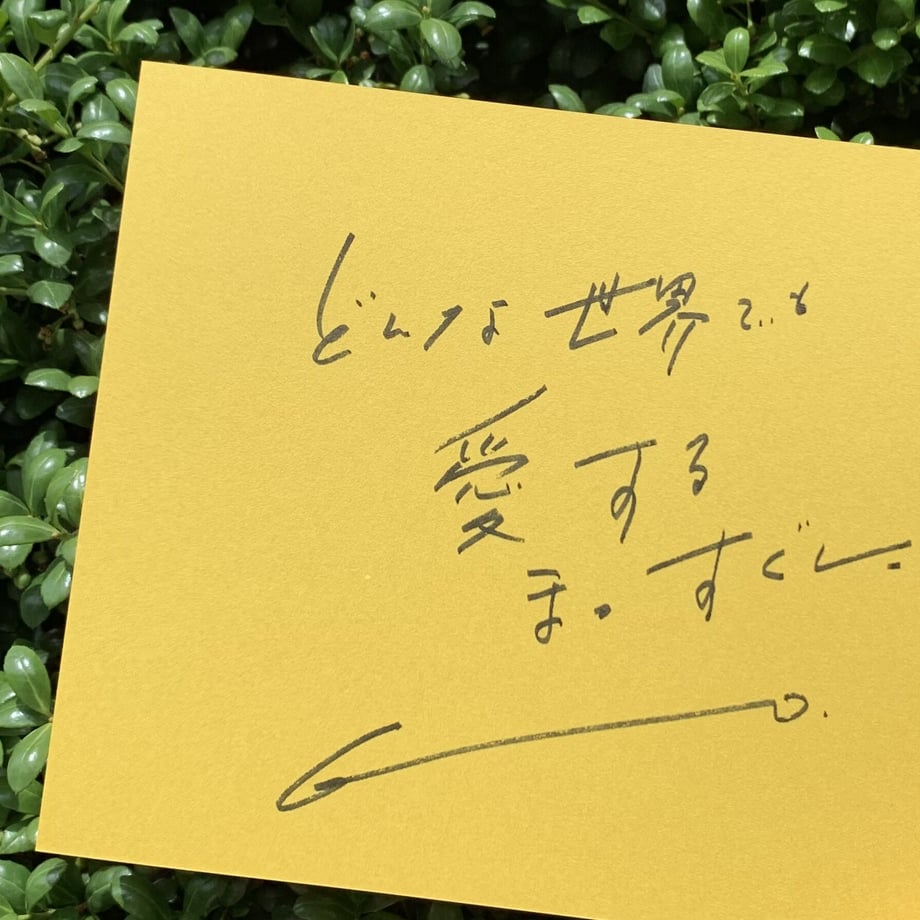 どんな世界でも
愛する
ま。すぐし.